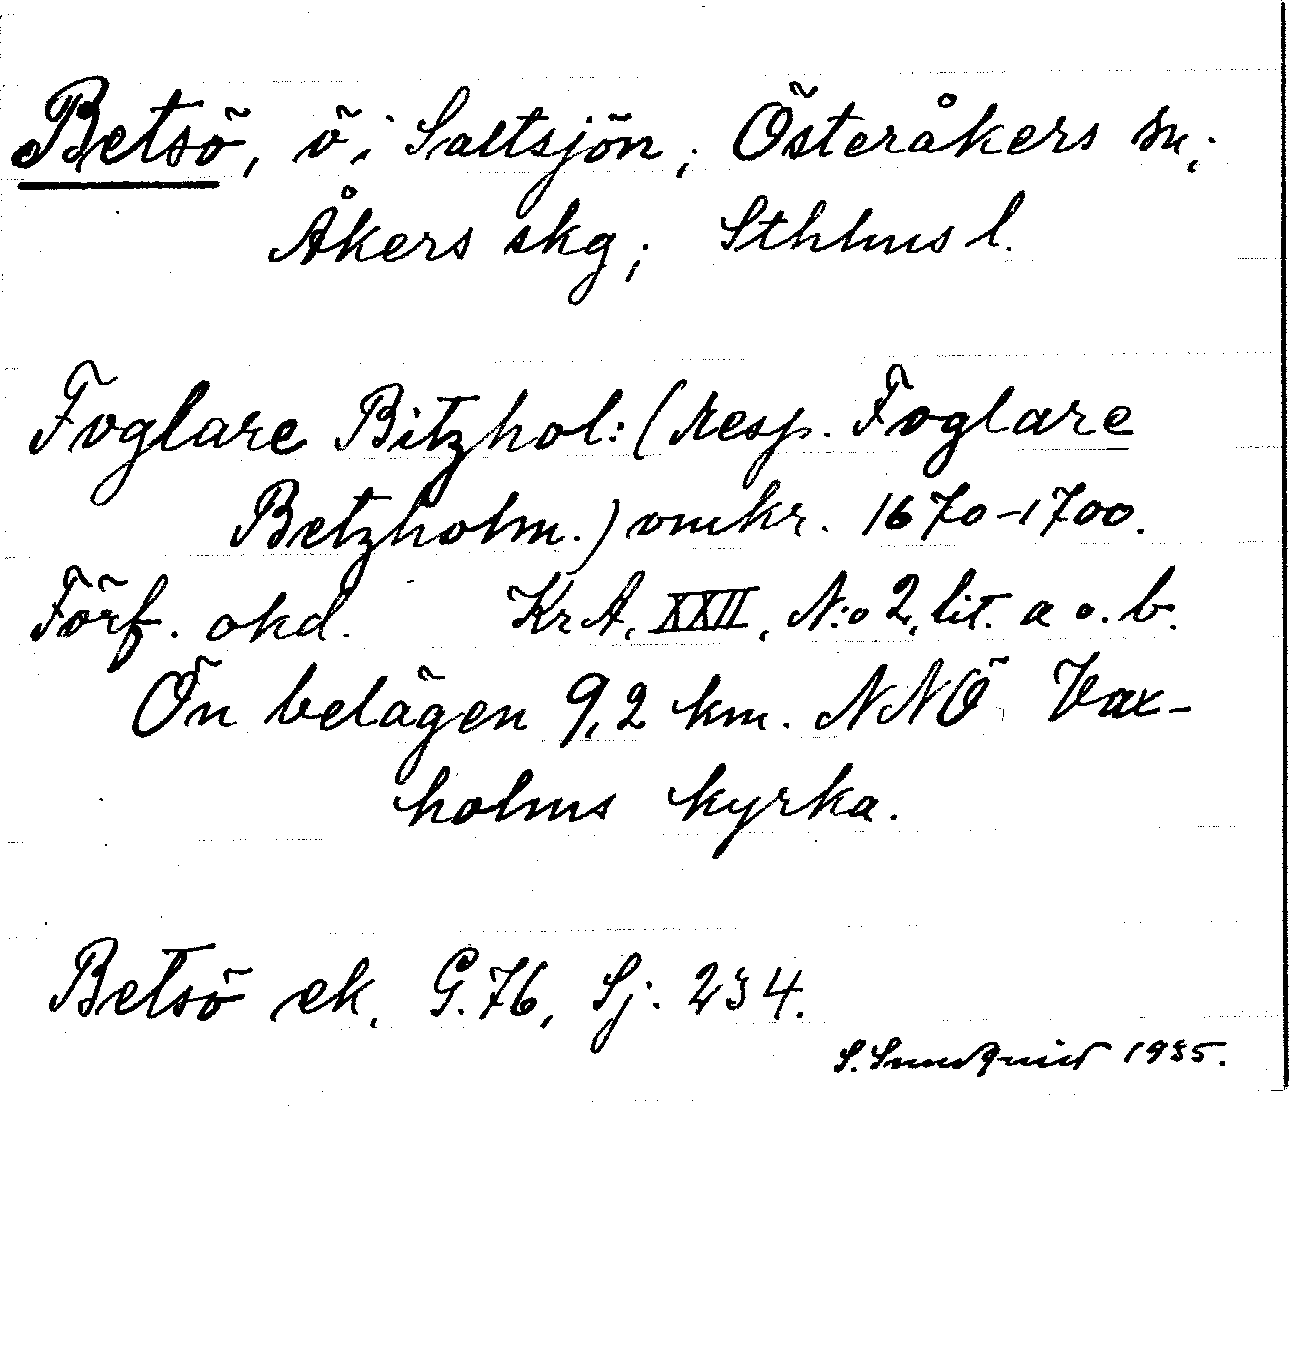 Betsö, ö i Saltsjön; Österåkers sn;
Åkers skg; Sthlms l.
Foglare Bitzhol: (resp. Foglare
Betzholm.) omkr. 1670-1700.
Förf. okd. KrA, XXII, N:o 2, lit. a o. b.
Ön belägen 9,2 km. NNÖ Vax-
holms kyrka.
Betsö ek. G. 76, Sj. 234.
S. Sundquist 1935.